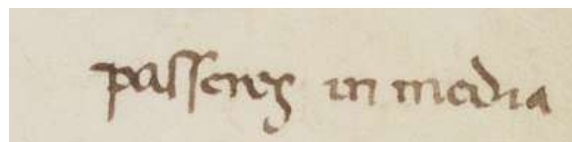 passeres in media